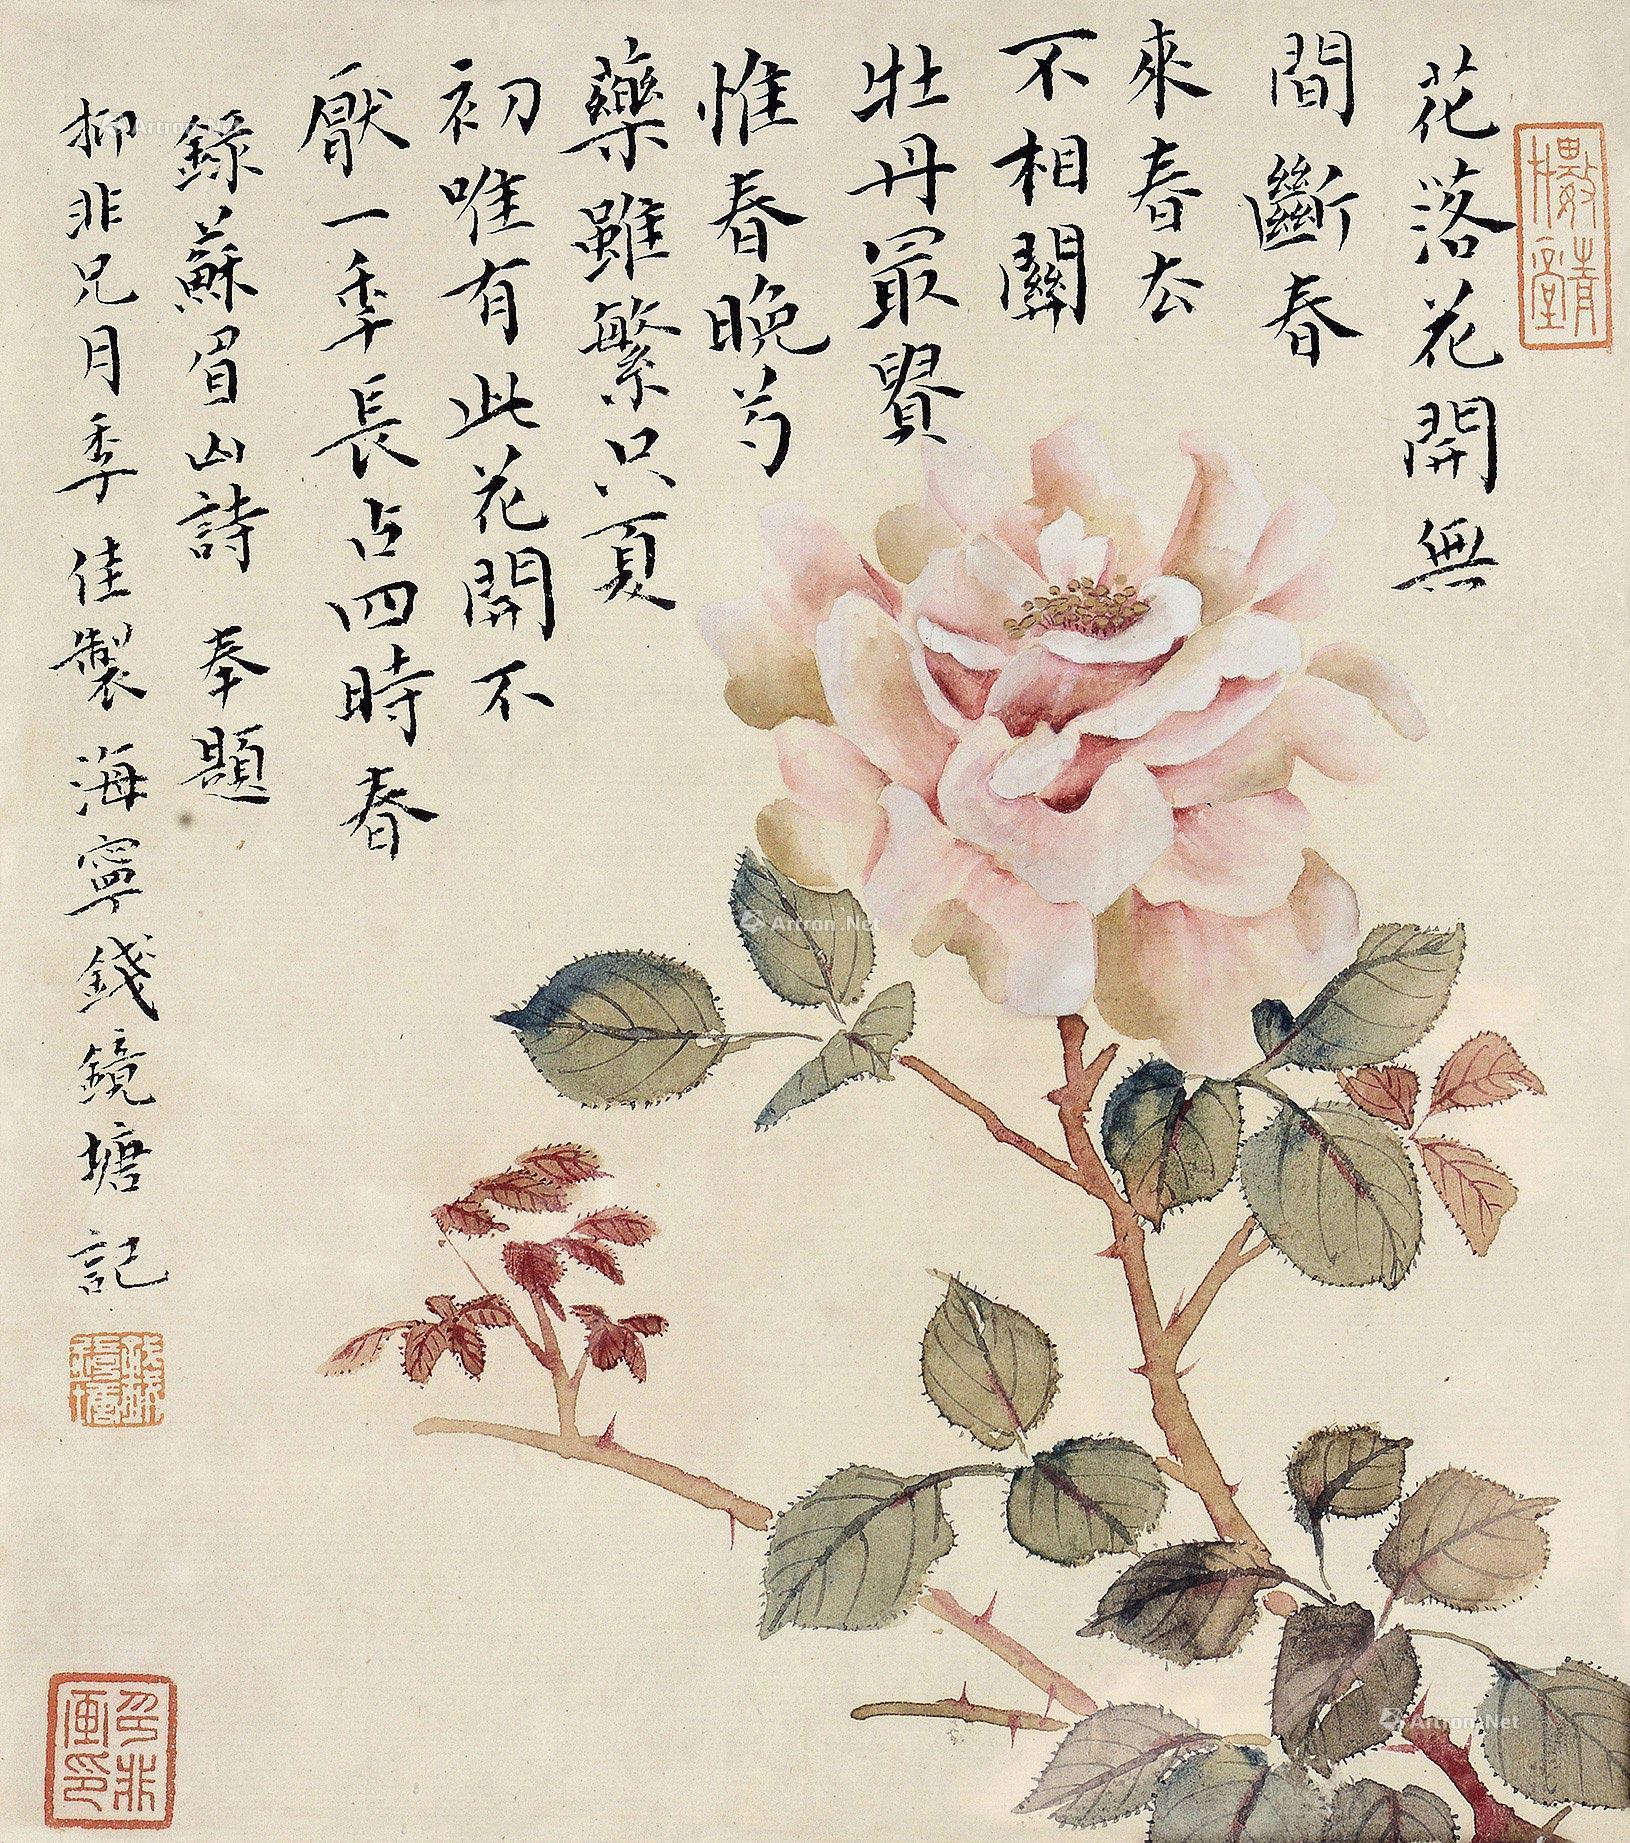 花落花開無
間斷春
來春去
不相關
牡丹最貴
惟春晚芍
藥雖繁只夏
初唯有此花開不
厭一季長占四時春
錄蘇眉山詩 奉題
抑非兄月季佳製 海寧錢鏡塘記
錢鏡塘
抑非画印
Artron.Net
Artron.Net
Artron.Net